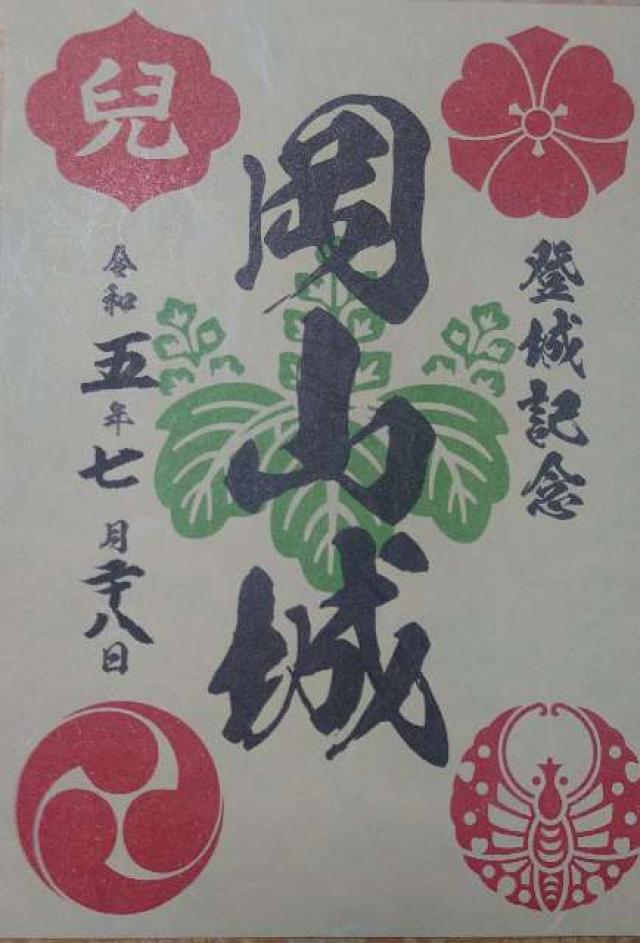 登城記念
岡山城
兒
令和五年七月二十八日